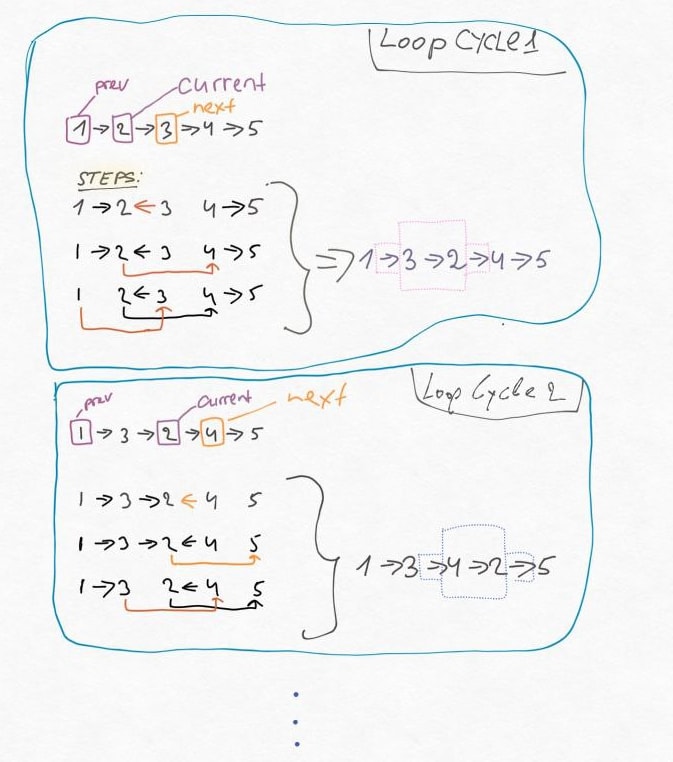 Loop Cycle 1
prev
current
next
1 → 2 → 3 → 4 → 5
STEPS:
1 → 2 ← 3 4 → 5
1 → 2 ← 3 4 → 5
1 2 ← 3 4 → 5
⇒ 1 → 3 → 2 → 4 → 5
Loop Cycle 2
prev
current
next
1 → 3 → 2 → 4 → 5
1 → 3 → 2 ← 4 5
1 → 3 → 2 ← 4 5
1 → 3 2 ← 4 5
1 → 3 → 4 → 2 → 5